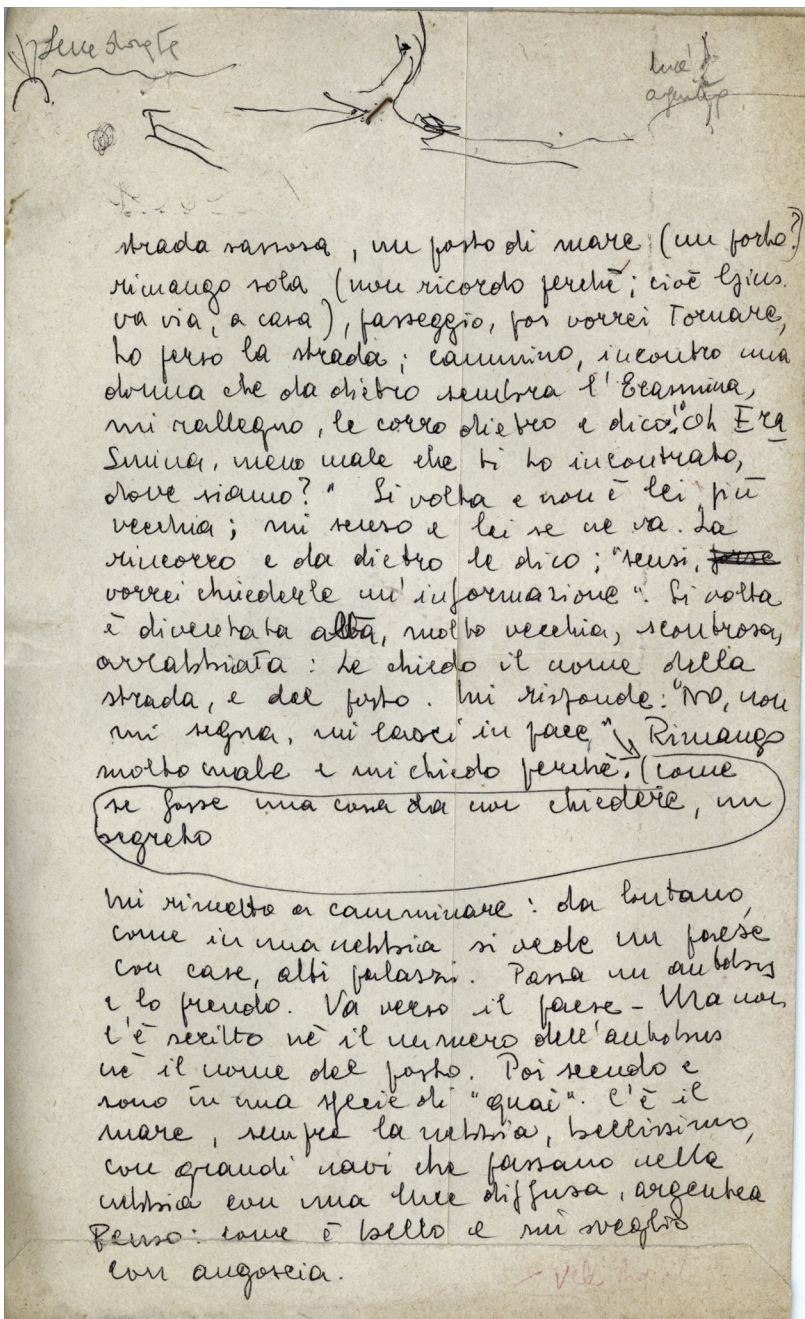 luce
strada sassosa, un posto di mare (un porto?)
rimango sola (non ricordo perchè; cioè Gius.
va via, a casa), passeggio, poi vorrei tornare,
ho perso la strada; cammino, incontro una
donna che da dietro sembra l'Erasmina,
mi rallegro, le corro dietro e dico: "Oh Era
Smina, meno male che ti ho incontrato,
dove siamo?" Si volta e non è lei, più
vecchia; mi scuso e lei se ne va. La
rincorro e da dietro le dico; "scusi, forse
vorrei chiederle un'informazione". Si volta
è diventata alta, molto vecchia, scontrosa,
arrabbiata: Le chiedo il nome della
strada, e del posto. Mi risponde: "NO, non
mi segua, mi lasci in pace" Rimango
molto male e mi chiedo perchè. (come
se fosse una cosa da non chiedere, un
segreto
Mi rimetto a camminare: da lontano,
come in una nebbia si vede un paese
con case, alti palazzi. Passa un autobus
e lo prendo. Va verso il paese - Ma non
c'è scritto nè il numero dell'autobus
nè il nome del posto. Poi scendo e
sono in una specie di "quai". C'è il
mare, sempre la nebbia, bellissimo,
con grandi navi che passano nella
nebbia con una luce diffusa, argentea
Penso: come è bello e mi sveglio
con angoscia.